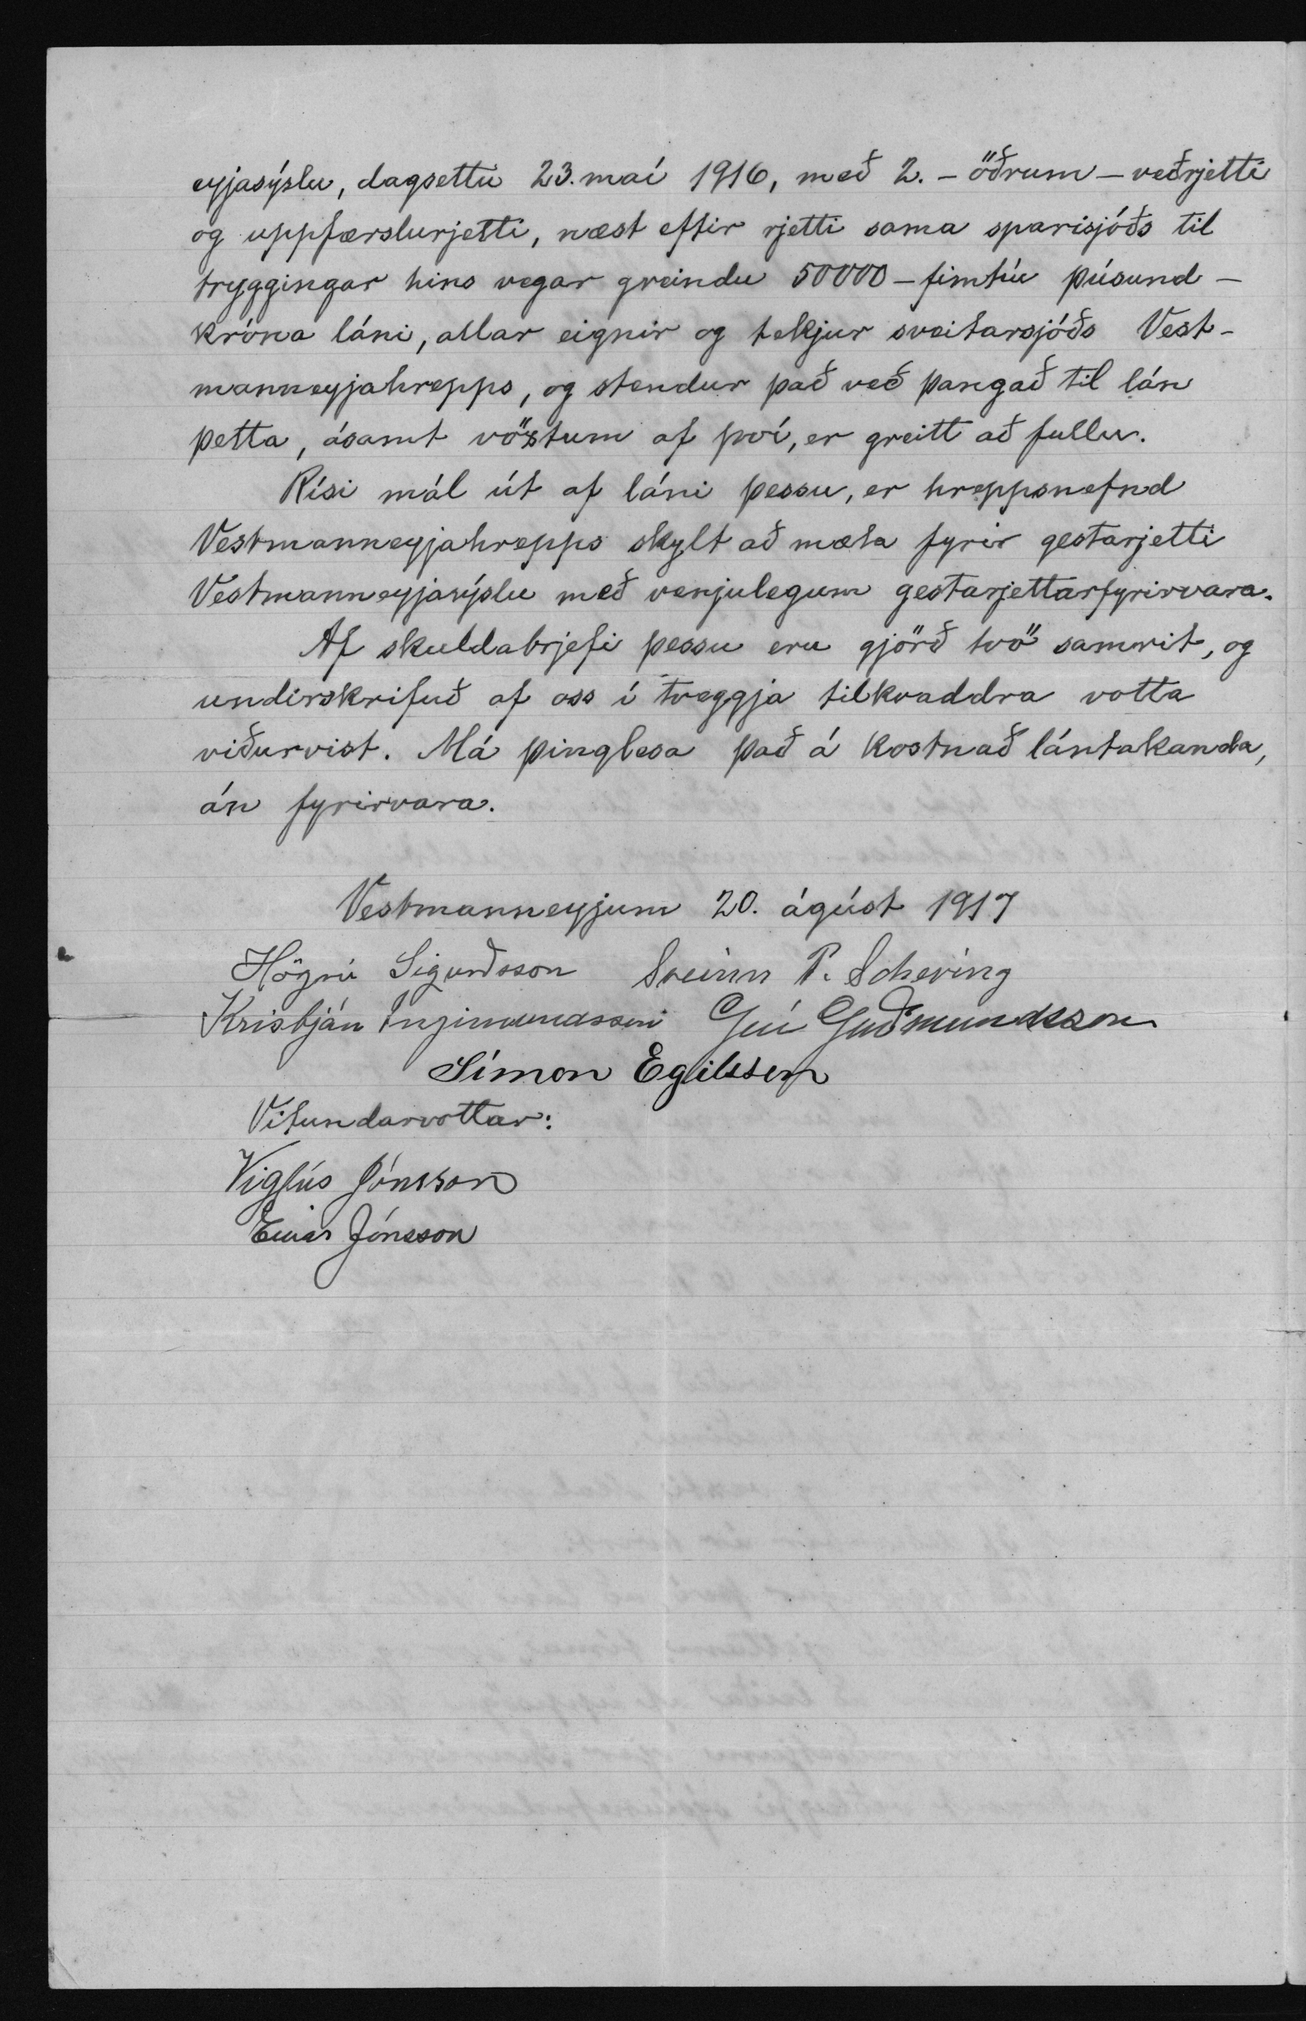 eyjasýslu, dagsettu 23. maí 1916, með 2. - öðrum - veðrjetti
og uppfærslurjetti, næst eftir rjetti sama sparisjóðs til
tryggingar hins vegar greindu 50000 - fimtíu þúsund -
króna láni, allar eignir og tekjur sveitarsjóðs Vest-
manneyjahrepps, og stendur það veð þangað til lán
þetta, ásamt vöxtum af því, er greitt að fullu.
Rísi mál út af láni þessu, er hreppsnefnd
Vestmanneyjahrepps skylt að mæta fyrir gestarjetti
Vestmanneyjasýslu með venjulegum gestarjettarfyrirvara.
Af skuldabrjefi þessu eru gjörð tvö samrit, og
undirskrifuð af oss í tveggja tilkvaddra votta
viðurvist. Má þinglesa það á kostnað lántakanda,
án fyrirvara.
Vestmanneyjum 20. ágúst 1917
Högni Sigurðsson Sveinn P. Scheving
Kristján Ingimundsson Guðmundsson
Símon Egilsson
Vitundarvottar:
Vigfús Jónsson
Einar Jónsson